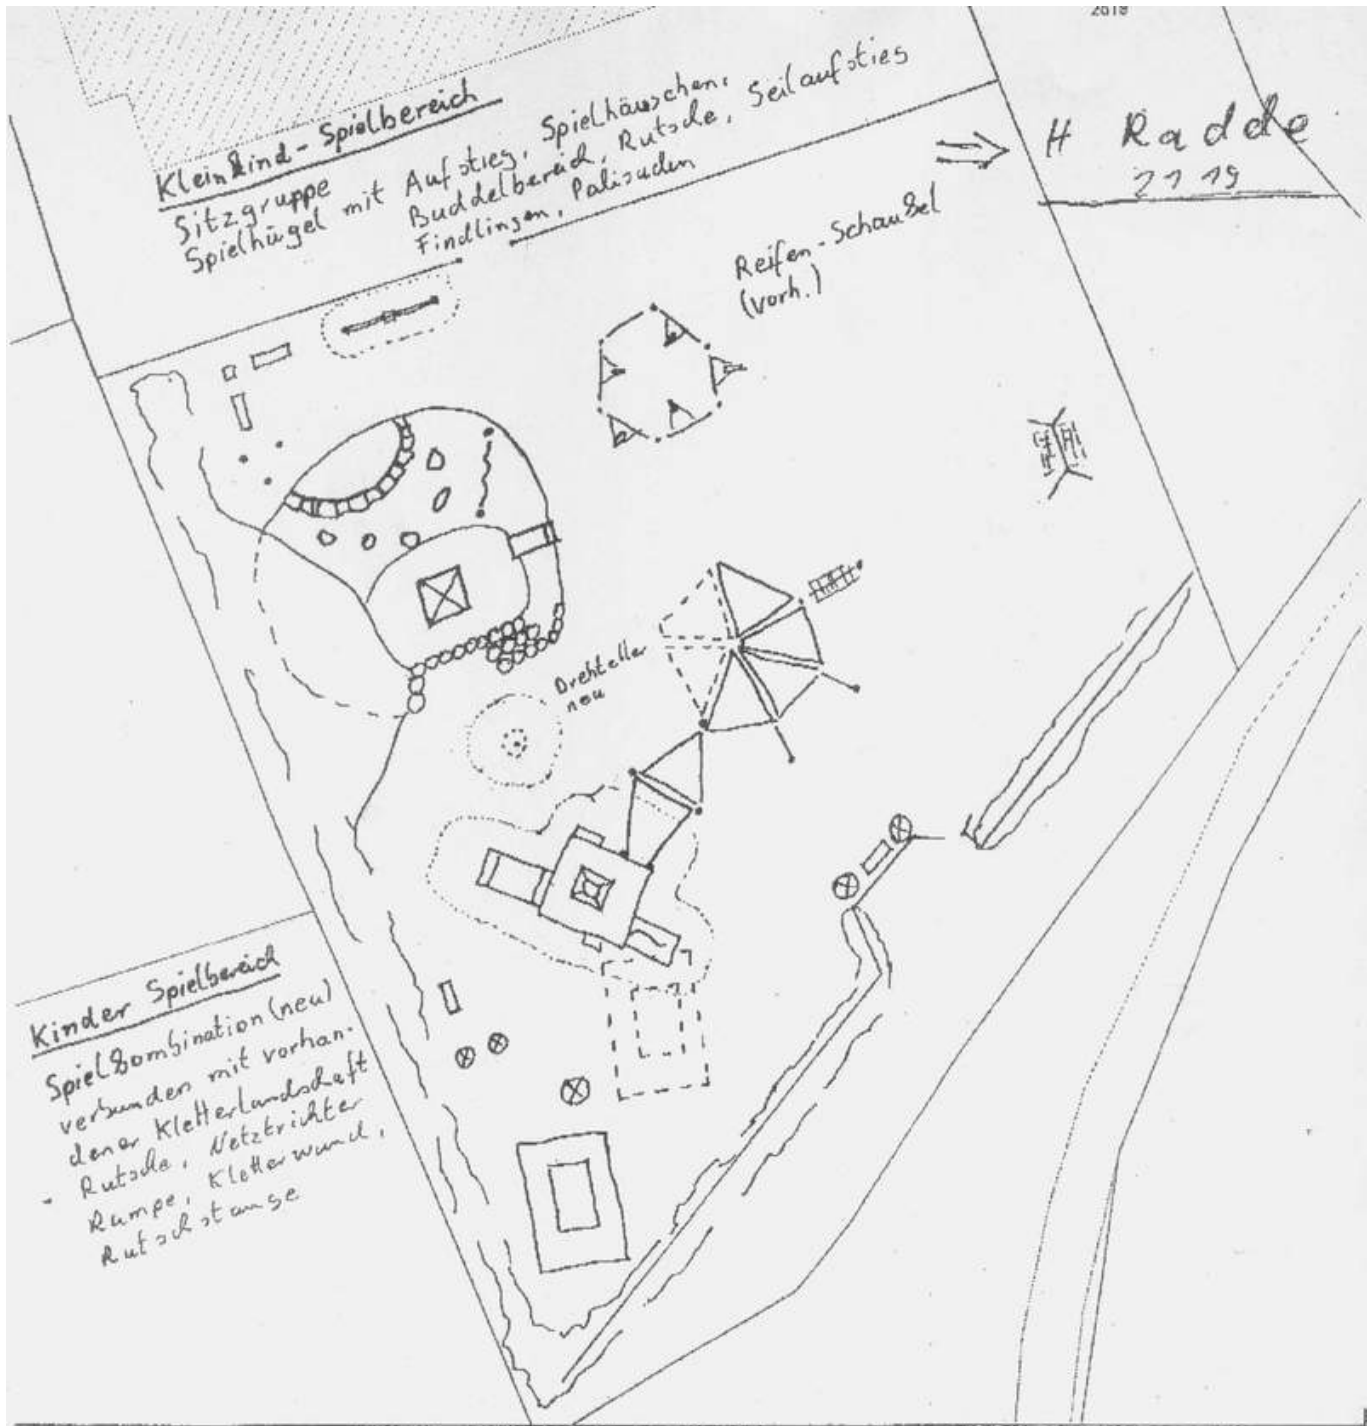 2619
Kleinkind-Spielbereich
Sitzgruppe
Spielhügel mit Aufstieg, Spielhäuschen,
Buddelbereich, Rutsche, Seilaufstieg
Findlingen, Palisaden
H Radde
Reifen-Schaukel
(vorh.)
Drehteller
neu
Kinder Spielbereich
Spielkombination (neu)
verbunden mit vorhan-
dener Kletterlandschaft
- Rutsche, Netztrichter
Rampe, Kletterwand,
Rutschstange